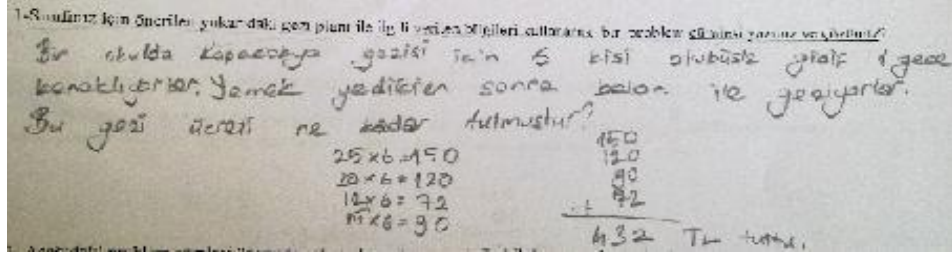 1-Sınıfınız için önerilen yukarıdaki gezi planı ile ilgili verilen bilgileri kullanarak bir problem cümlesi yazınız ve çözünüz?
Bir okulda Kapadokya gezisi için 6 kişi otobüsle gidip 1 gece
konaklıyorlar. Yemek yedikten sonra balon ile geziyorlar.
Bu gezi ücreti ne kadar tutmuştur?
25 x 6 = 150
20 x 6 = 120
12 x 6 = 72
15 x 6 = 90
150
120
90
+ 72
432 TL tuttu.